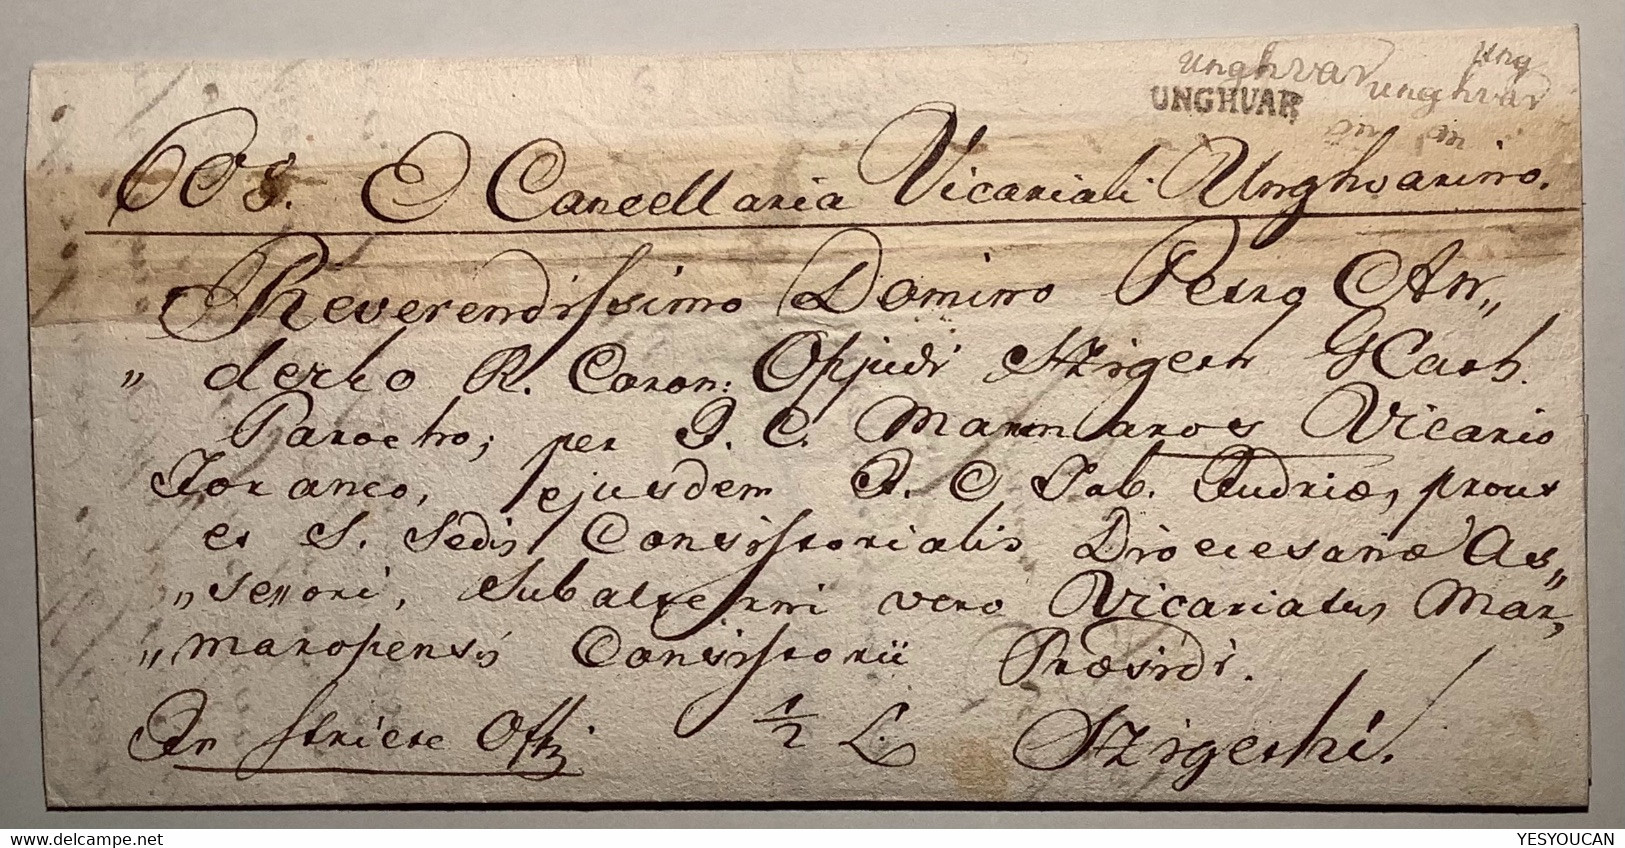 Unghvar Ung
UNGHVAR unghvar
608. E Cancellaria Vicariali Unghvarino.
Reverendissimo Domino Petro An„
„ derko R. Canon: Oppidi Szigeth GCath.
Parocho, per I. C. Marmaros Vicario
Foraneo, ejusdem I. C. Tab. Judriæ, prout
et S. Sedis Consistorialis Dioecesanæ As„
„sessori, Subalterni vero Vicariatus Mar„
„marosiensis Consistorii Præsidi.
In stricte Offi 1/2 L. Szigethi.
YESYOUCAN